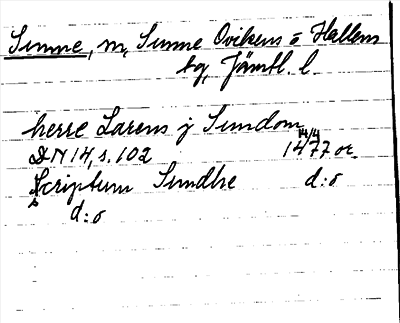 Sunne, m, Sunne Ovikens o Hallens
tg, Jämtl. l.
herre Larens j Sundom
14/4
DN 14, s. 102 1477 or.
Scriptum Sundhe d:o
d:o